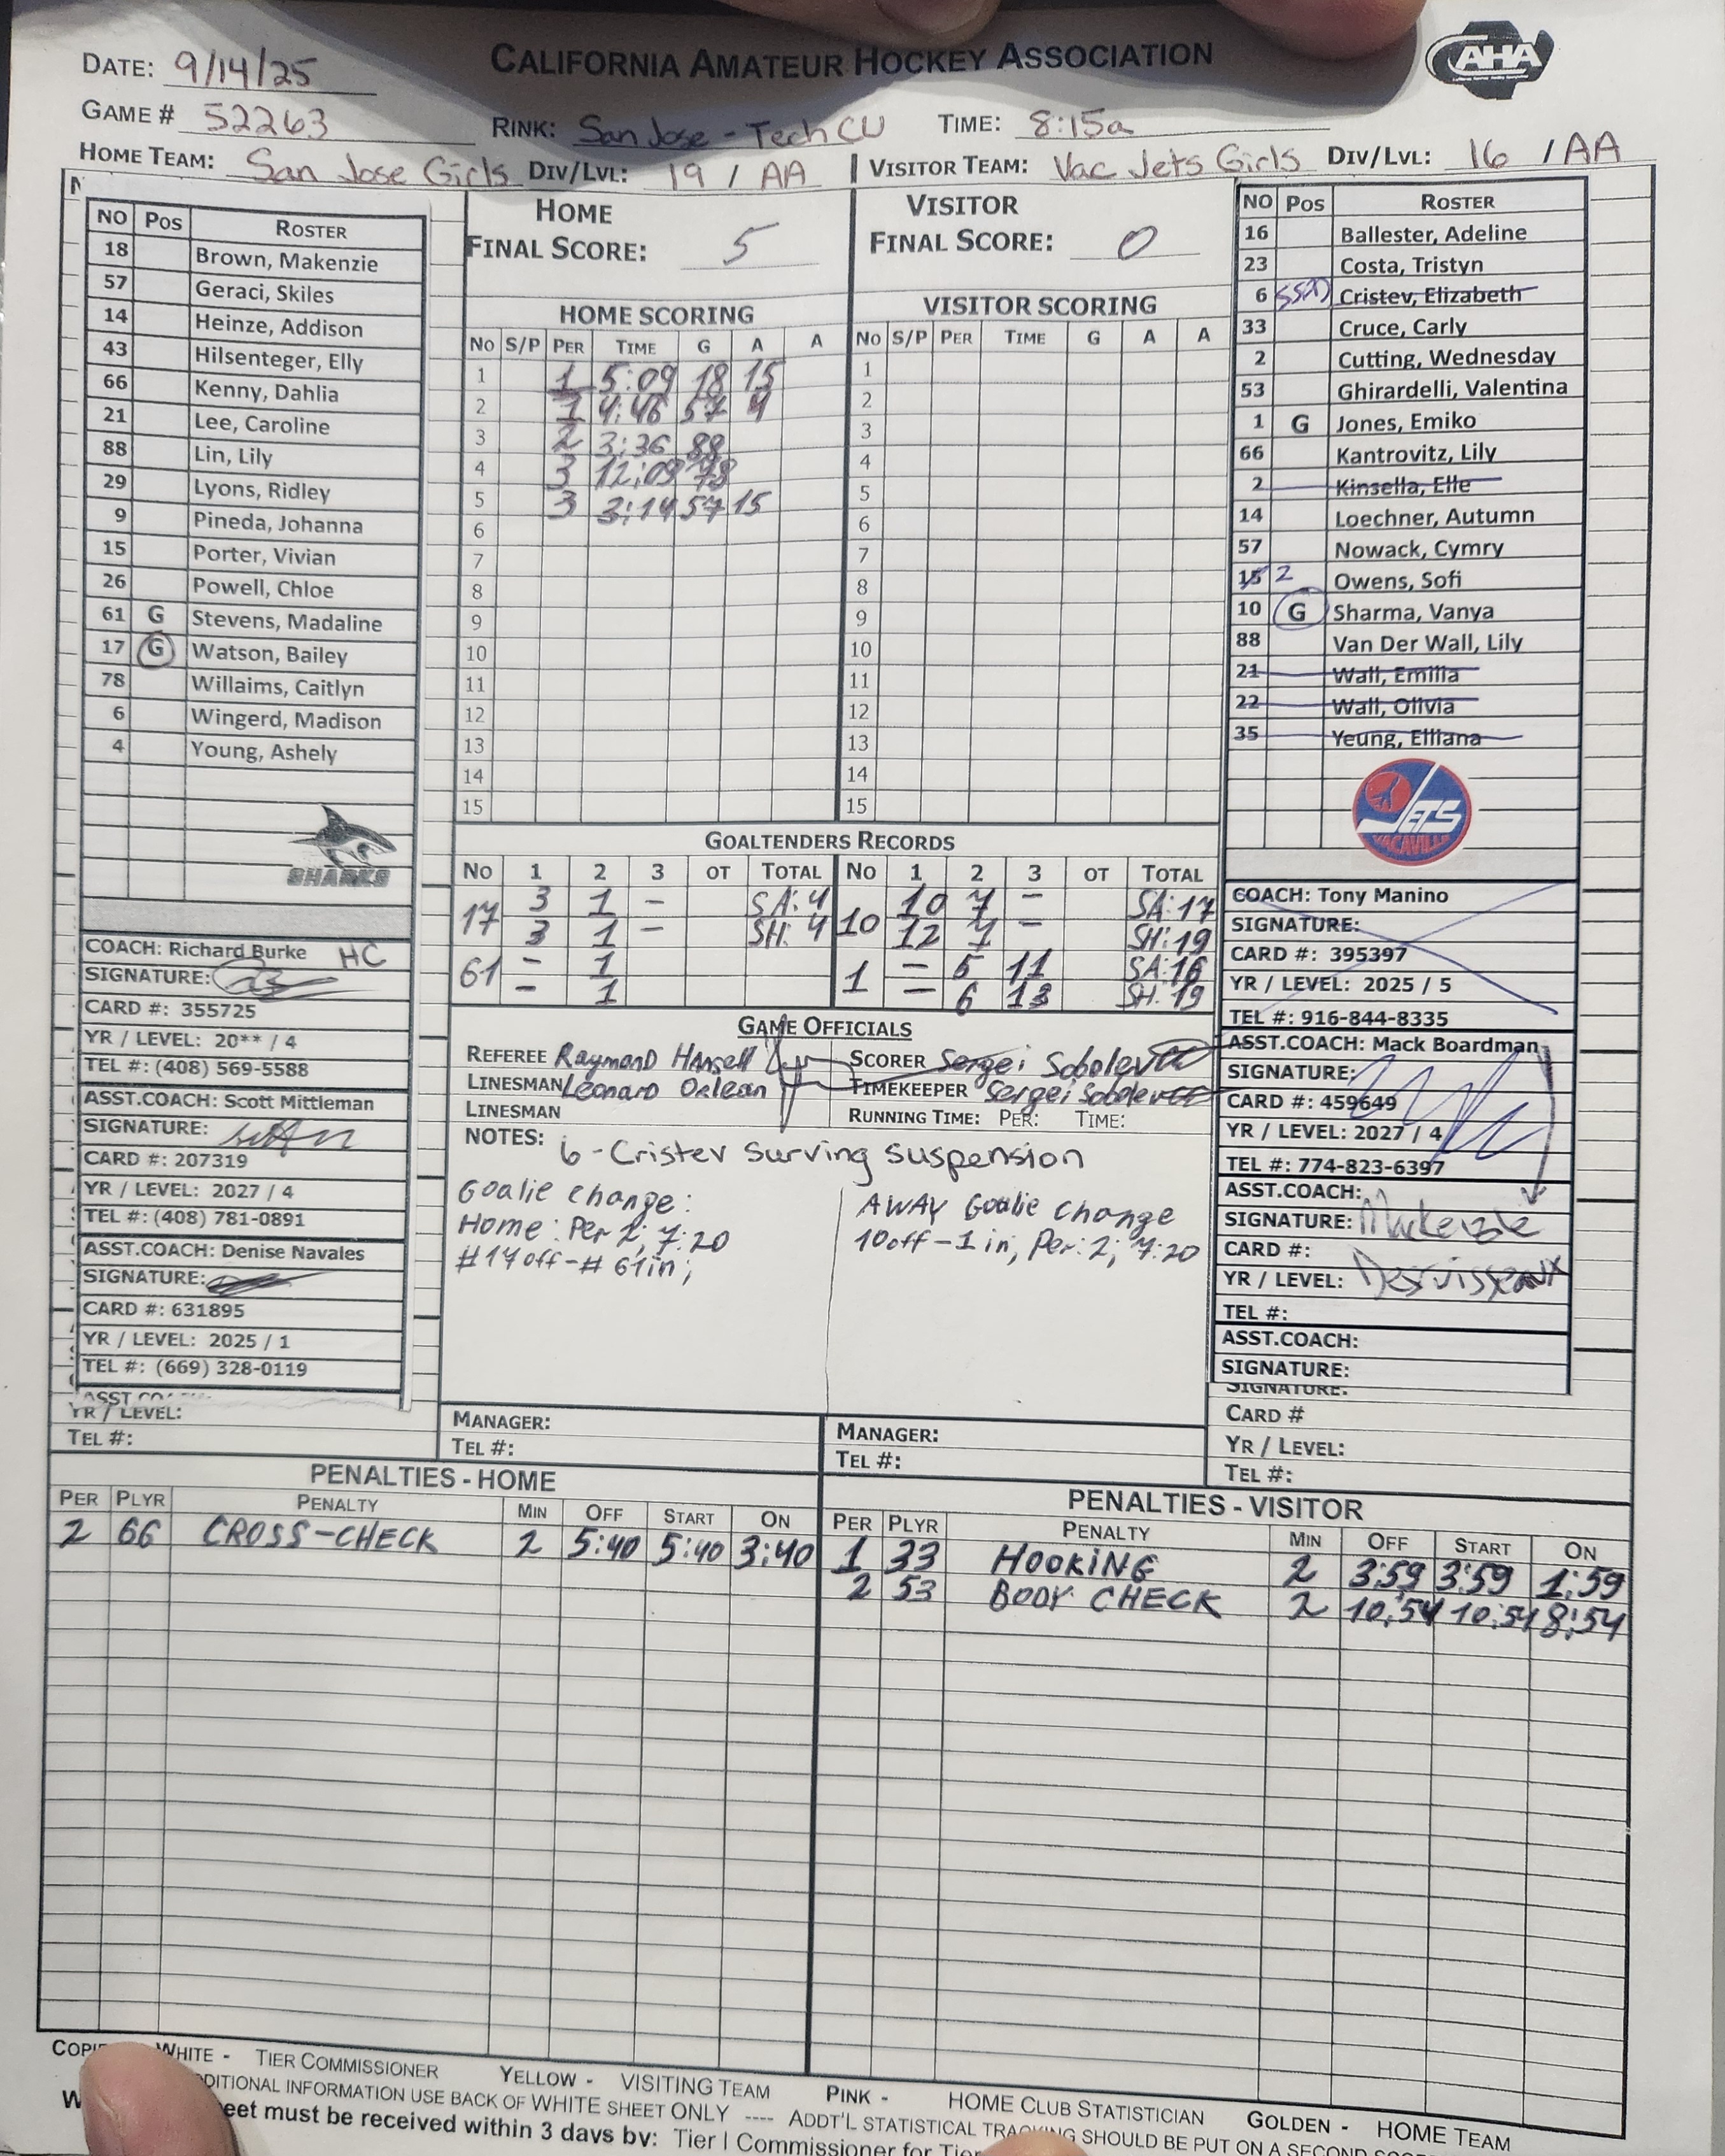 CALIFORNIA AMATEUR HOCKEY ASSOCIATION
CAHA
DATE: 9/14/25
GAME # 52263
RINK: San Jose - Tech CU
TIME: 8:15a
HOME TEAM: San Jose Girls DIV/LVL: 19 / AA
VISITOR TEAM: Vac Jets Girls DIV/LVL: 16 / AA
NO POS ROSTER
18 Brown, Makenzie
57 Geraci, Skiles
14 Heinze, Addison
43 Hilsenteger, Elly
66 Kenny, Dahlia
21 Lee, Caroline
88 Lin, Lily
29 Lyons, Ridley
9 Pineda, Johanna
15 Porter, Vivian
26 Powell, Chloe
61 G Stevens, Madaline
17 G Watson, Bailey
78 Willaims, Caitlyn
6 Wingerd, Madison
4 Young, Ashely
SHARKS
COACH: Richard Burke HC
SIGNATURE:
CARD #: 355725
YR / LEVEL: 20** / 4
TEL #: (408) 569-5588
ASST.COACH: Scott Mittleman
SIGNATURE:
CARD #: 207319
YR / LEVEL: 2027 / 4
TEL #: (408) 781-0891
ASST.COACH: Denise Navales
SIGNATURE:
CARD #: 631895
YR / LEVEL: 2025 / 1
TEL #: (669) 328-0119
YR / LEVEL:
TEL #:
HOME
FINAL SCORE: 5
VISITOR
FINAL SCORE: 0
HOME SCORING
NO S/P PER TIME G A A
1 1 5:09 18 15
2 1 4:46 57 4
3 2 3:36 88
4 3 12:09 78
5 3 3:14 57 15
6
7
8
9
10
11
12
13
14
15
VISITOR SCORING
NO S/P PER TIME G A A
1
2
3
4
5
6
7
8
9
10
11
12
13
14
15
GOALTENDERS RECORDS
NO 1 2 3 OT TOTAL NO 1 2 3 OT TOTAL
17 3 1 - SA: 4 10 10 7 - SA: 17
3 1 - SH: 4 12 7 - SH: 19
61 - 1 1 - 5 11 SA: 16
- 1 - 6 13 SH: 19
GAME OFFICIALS
REFEREE Raymond Hansell SCORER Sergei Sobolev
LINESMAN Leonard Orlean TIMEKEEPER Sergei Sobolev
LINESMAN RUNNING TIME: PER: TIME:
NOTES: 6 - Cristev surving suspension
Goalie change:
Home: Per 2; 7:20
#17 off - # 61 in;
AWAY Goalie change
10 off - 1 in, Per: 2; 7:20
MANAGER:
TEL #:
MANAGER:
TEL #:
NO POS ROSTER
16 Ballester, Adeline
23 Costa, Tristyn
6 Cristev, Elizabeth
33 Cruce, Carly
2 Cutting, Wednesday
53 Ghirardelli, Valentina
1 G Jones, Emiko
66 Kantrovitz, Lily
2 Kinsella, Elle
14 Loechner, Autumn
57 Nowack, Cymry
15 2 Owens, Sofi
10 G Sharma, Vanya
88 Van Der Wall, Lily
21 Wall, Emilia
22 Wall, Olivia
35 Yeung, Elliana
JETS
VACAVILLE
COACH: Tony Manino
SIGNATURE:
CARD #: 395397
YR / LEVEL: 2025 / 5
TEL #: 916-844-8335
ASST.COACH: Mack Boardman
SIGNATURE:
CARD #: 459649
YR / LEVEL: 2027 / 4
TEL #: 774-823-6397
ASST.COACH:
SIGNATURE: Mackenzie
CARD #:
YR / LEVEL:
TEL #:
ASST.COACH:
SIGNATURE:
SIGNATURE:
CARD #
YR / LEVEL:
TEL #:
PENALTIES - HOME
PER PLYR PENALTY MIN OFF START ON
2 66 CROSS-CHECK 2 5:40 5:40 3:40
PENALTIES - VISITOR
PER PLYR PENALTY MIN OFF START ON
1 33 HOOKING 2 3:59 3:59 1:59
2 53 BODY CHECK 2 10:54 10:54 8:54
WHITE - TIER COMMISSIONER YELLOW - VISITING TEAM PINK - HOME CLUB STATISTICIAN GOLDEN - HOME TEAM
INFORMATION USE BACK OF WHITE SHEET ONLY ---- ADDT'L STATISTICAL SHOULD BE PUT ON A SECOND
must be received within 3 days by: Tier I Commissioner for